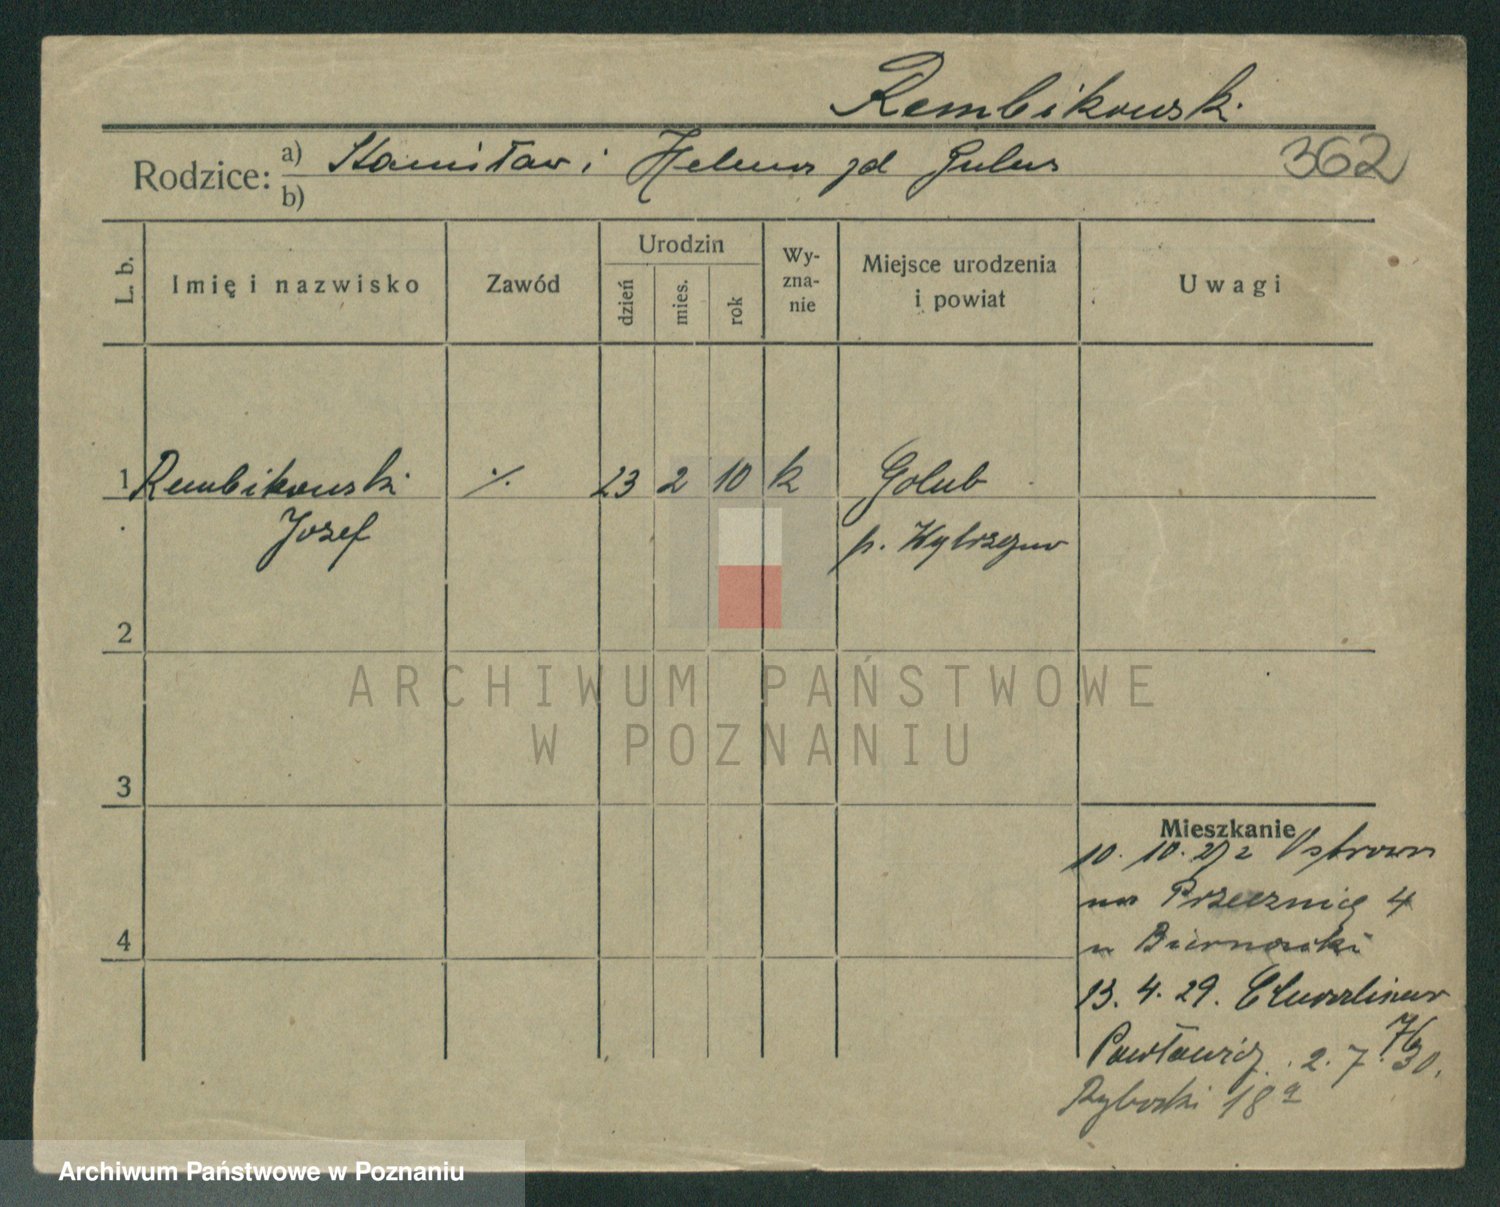 Rembikowski
Rodzice: a) Stanisław i Helena zd Gulus
b)
362
L. b.
Imię i nazwisko
Zawód
Urodzin
dzień
mies.
rok
Wy-
zna-
nie
Miejsce urodzenia
i powiat
Uwagi
1 Rembikowski ·/· 23 2 10 k Golub
Józef p. Wąbrzeźno
2
3
4
ARCHIWUM PAŃSTWOWE
W POZNANIU
Mieszkanie
10. 10. 272 Ostrowo
4
u Biernacki
13. 4. 29.
76
2. 7. 30.
Rybaki 18a
Archiwum Państwowe w Poznaniu